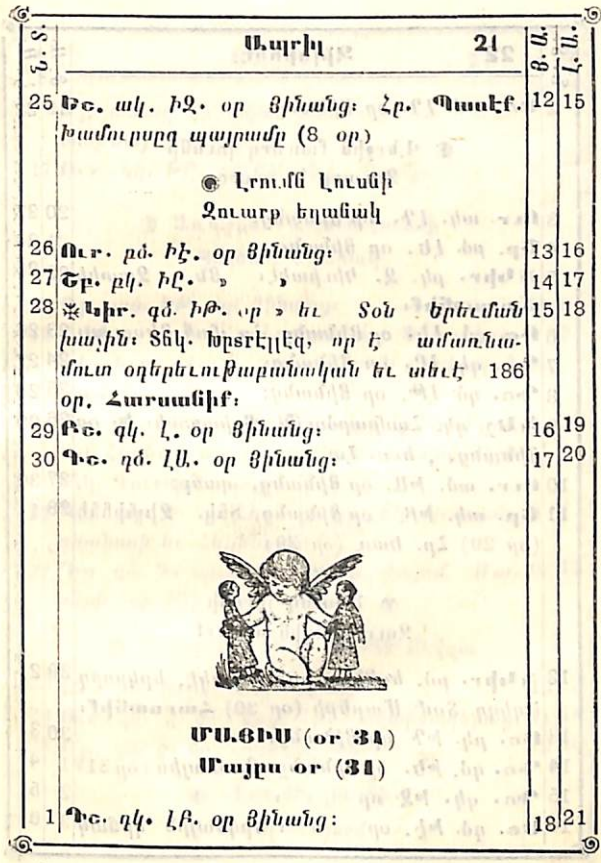 Ն. Տ. Ապրիլ 21 Յ. Ա. Հ. Ա.
25 Եշ. ակ. ԻԶ. օր Յինանց: Հր. Պասէք. 12 15
Խամուրսըզ պայրամը (8 օր)
Լրումն Լուսնի
Զուարթ եղանակ
26 Ուր. բձ. ԻԷ. օր Յինանց: 13 16
27 Շբ. բկ. ԻԸ. » » 14 17
28 Կիր. գձ. ԻԹ. օր » եւ Տօն Երեւման 15 18
խաչին: Տճկ. Խըտրէլլէզ, որ է ամառնա-
մուտ օդերեւութաբանական եւ տեւէ 186
օր, Հարսանիք:
29 Բշ. գկ. Լ. օր Յինանց: 16 19
30 Գշ. դձ. ԼԱ. օր Յինանց: 17 20
ՄԱՅԻՍ (օր 31)
Մայըս օր (31)
1 Դշ. դկ. ԼԲ. օր Յինանց: 18 21